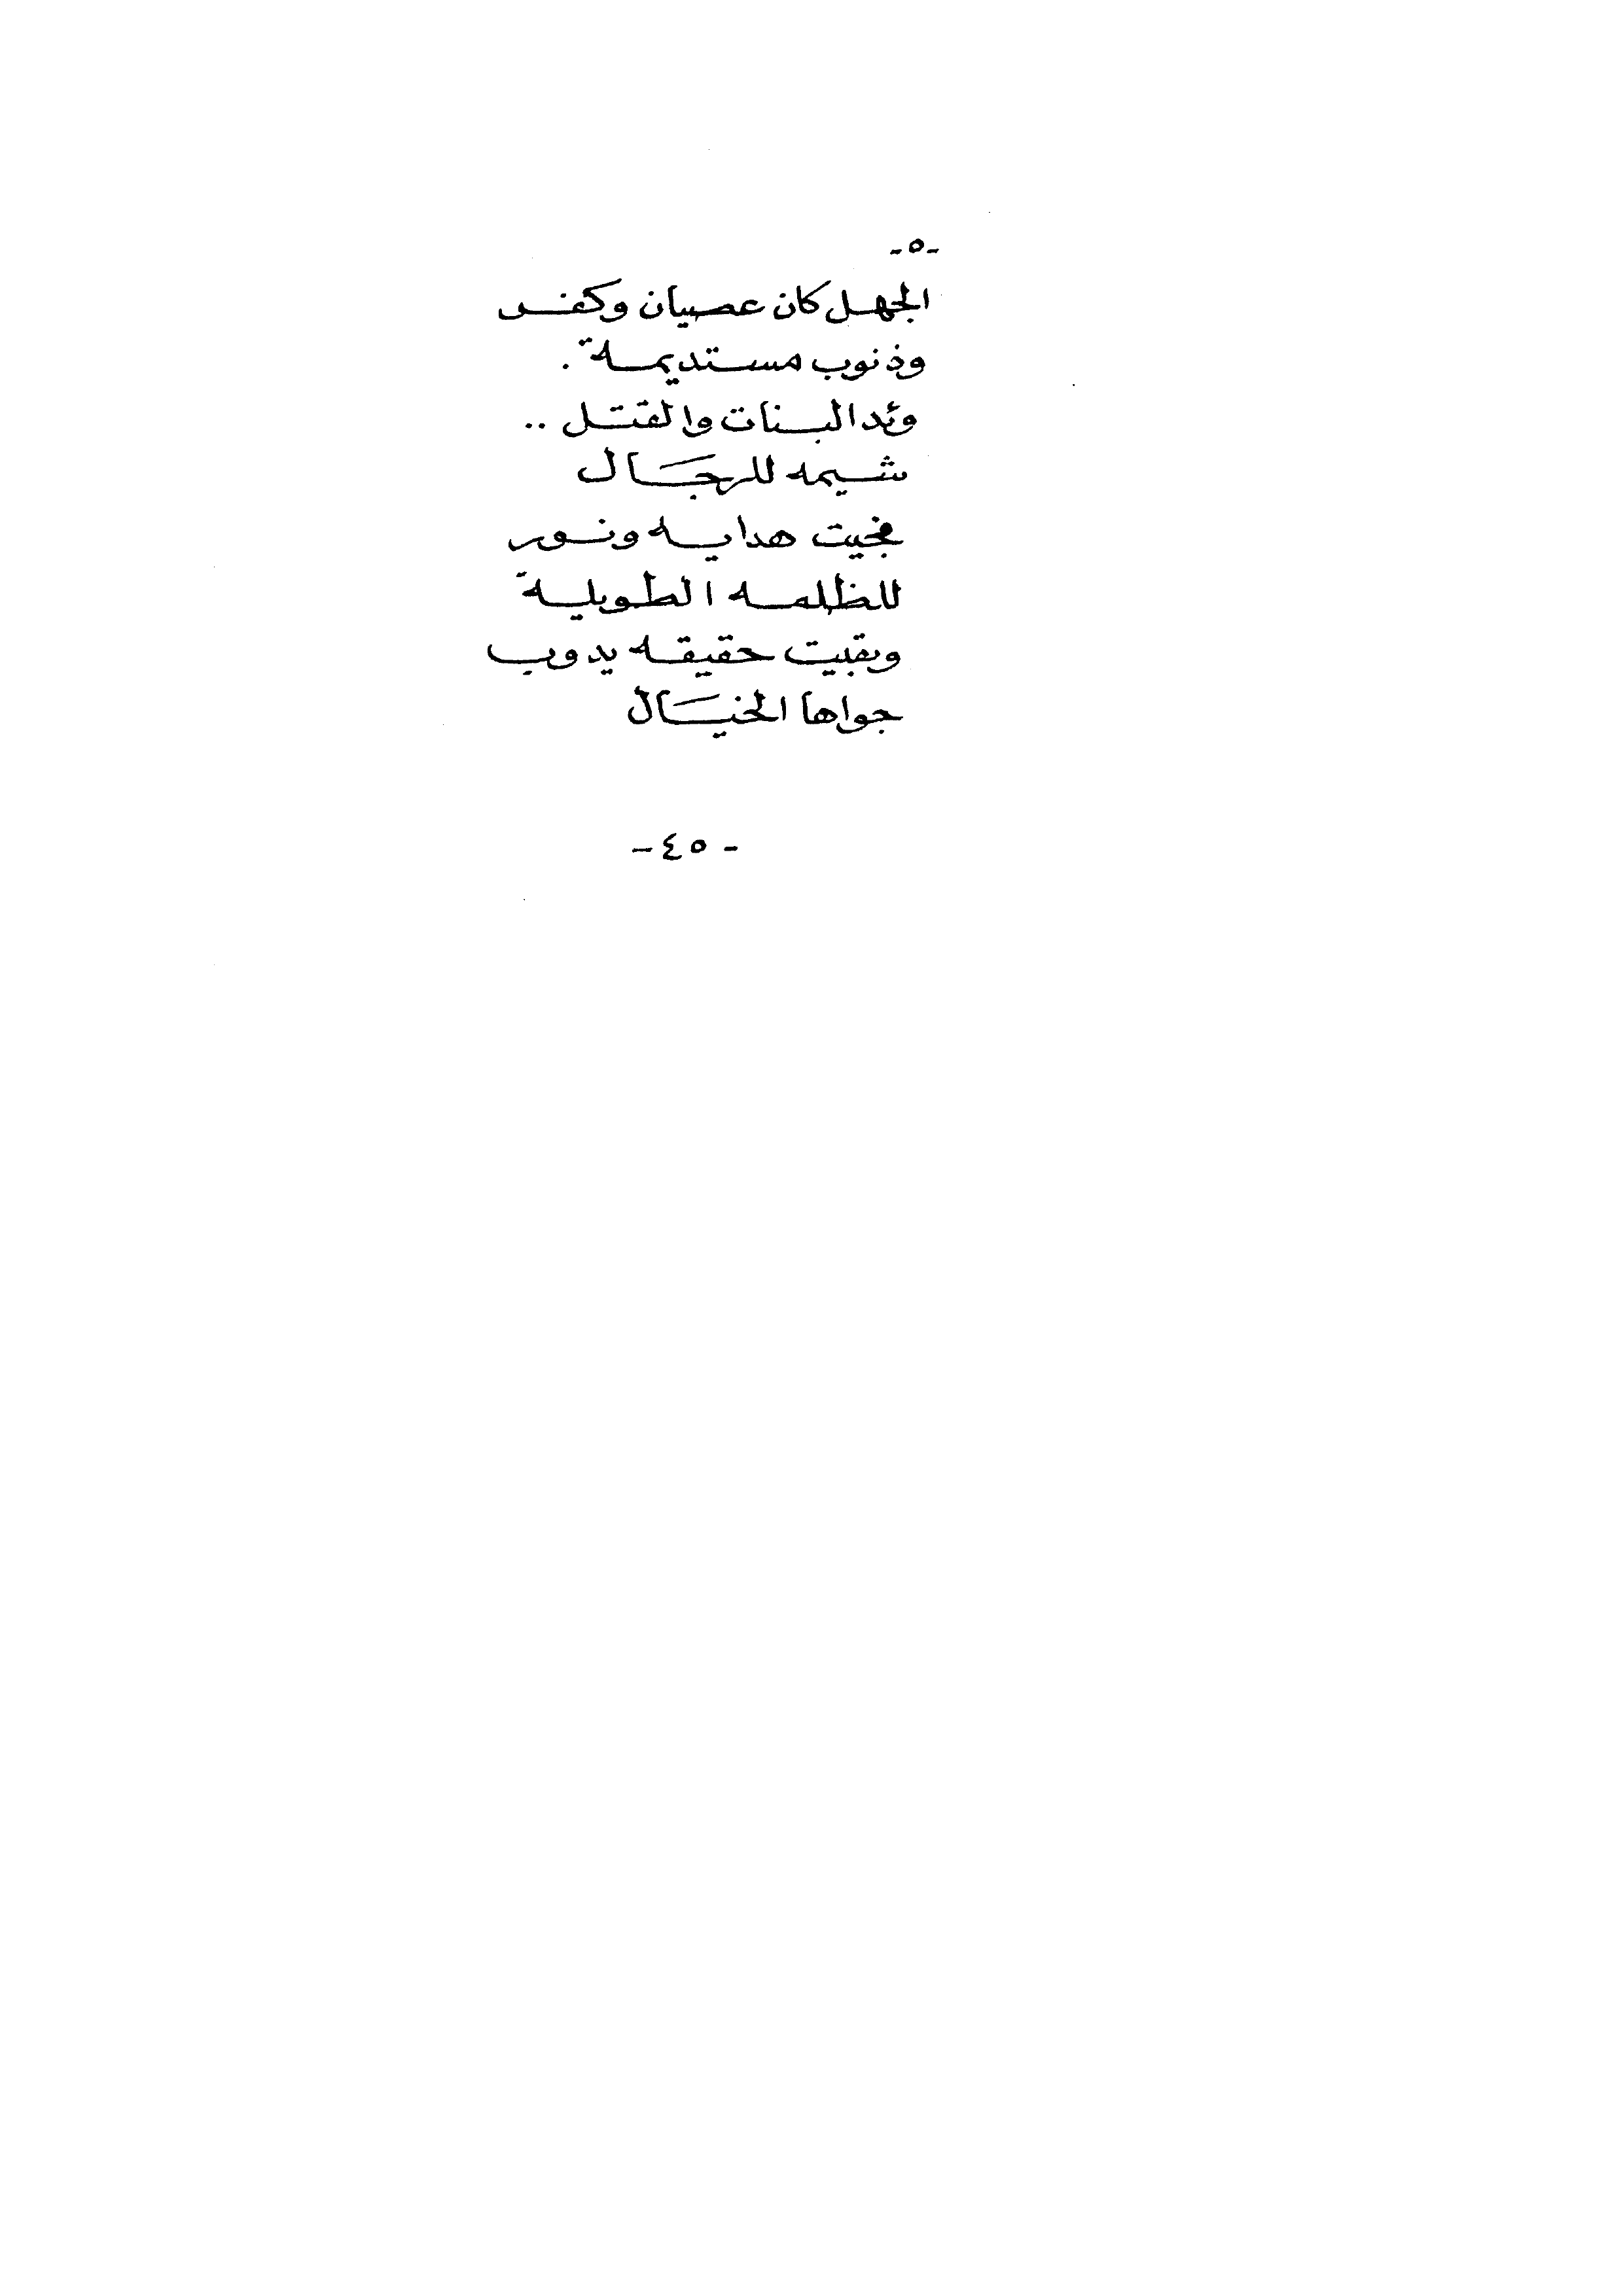 -٥-
الجهل كان عصيان وكفر
وذنوب مستديمة .
وئد البنات والقتل ..
شيمه للرجال
فجيت هدايه ونور
للظلمه الطويلة
وبقيت حقيقه يدوب
جواها الخيال
- ٤٥ -